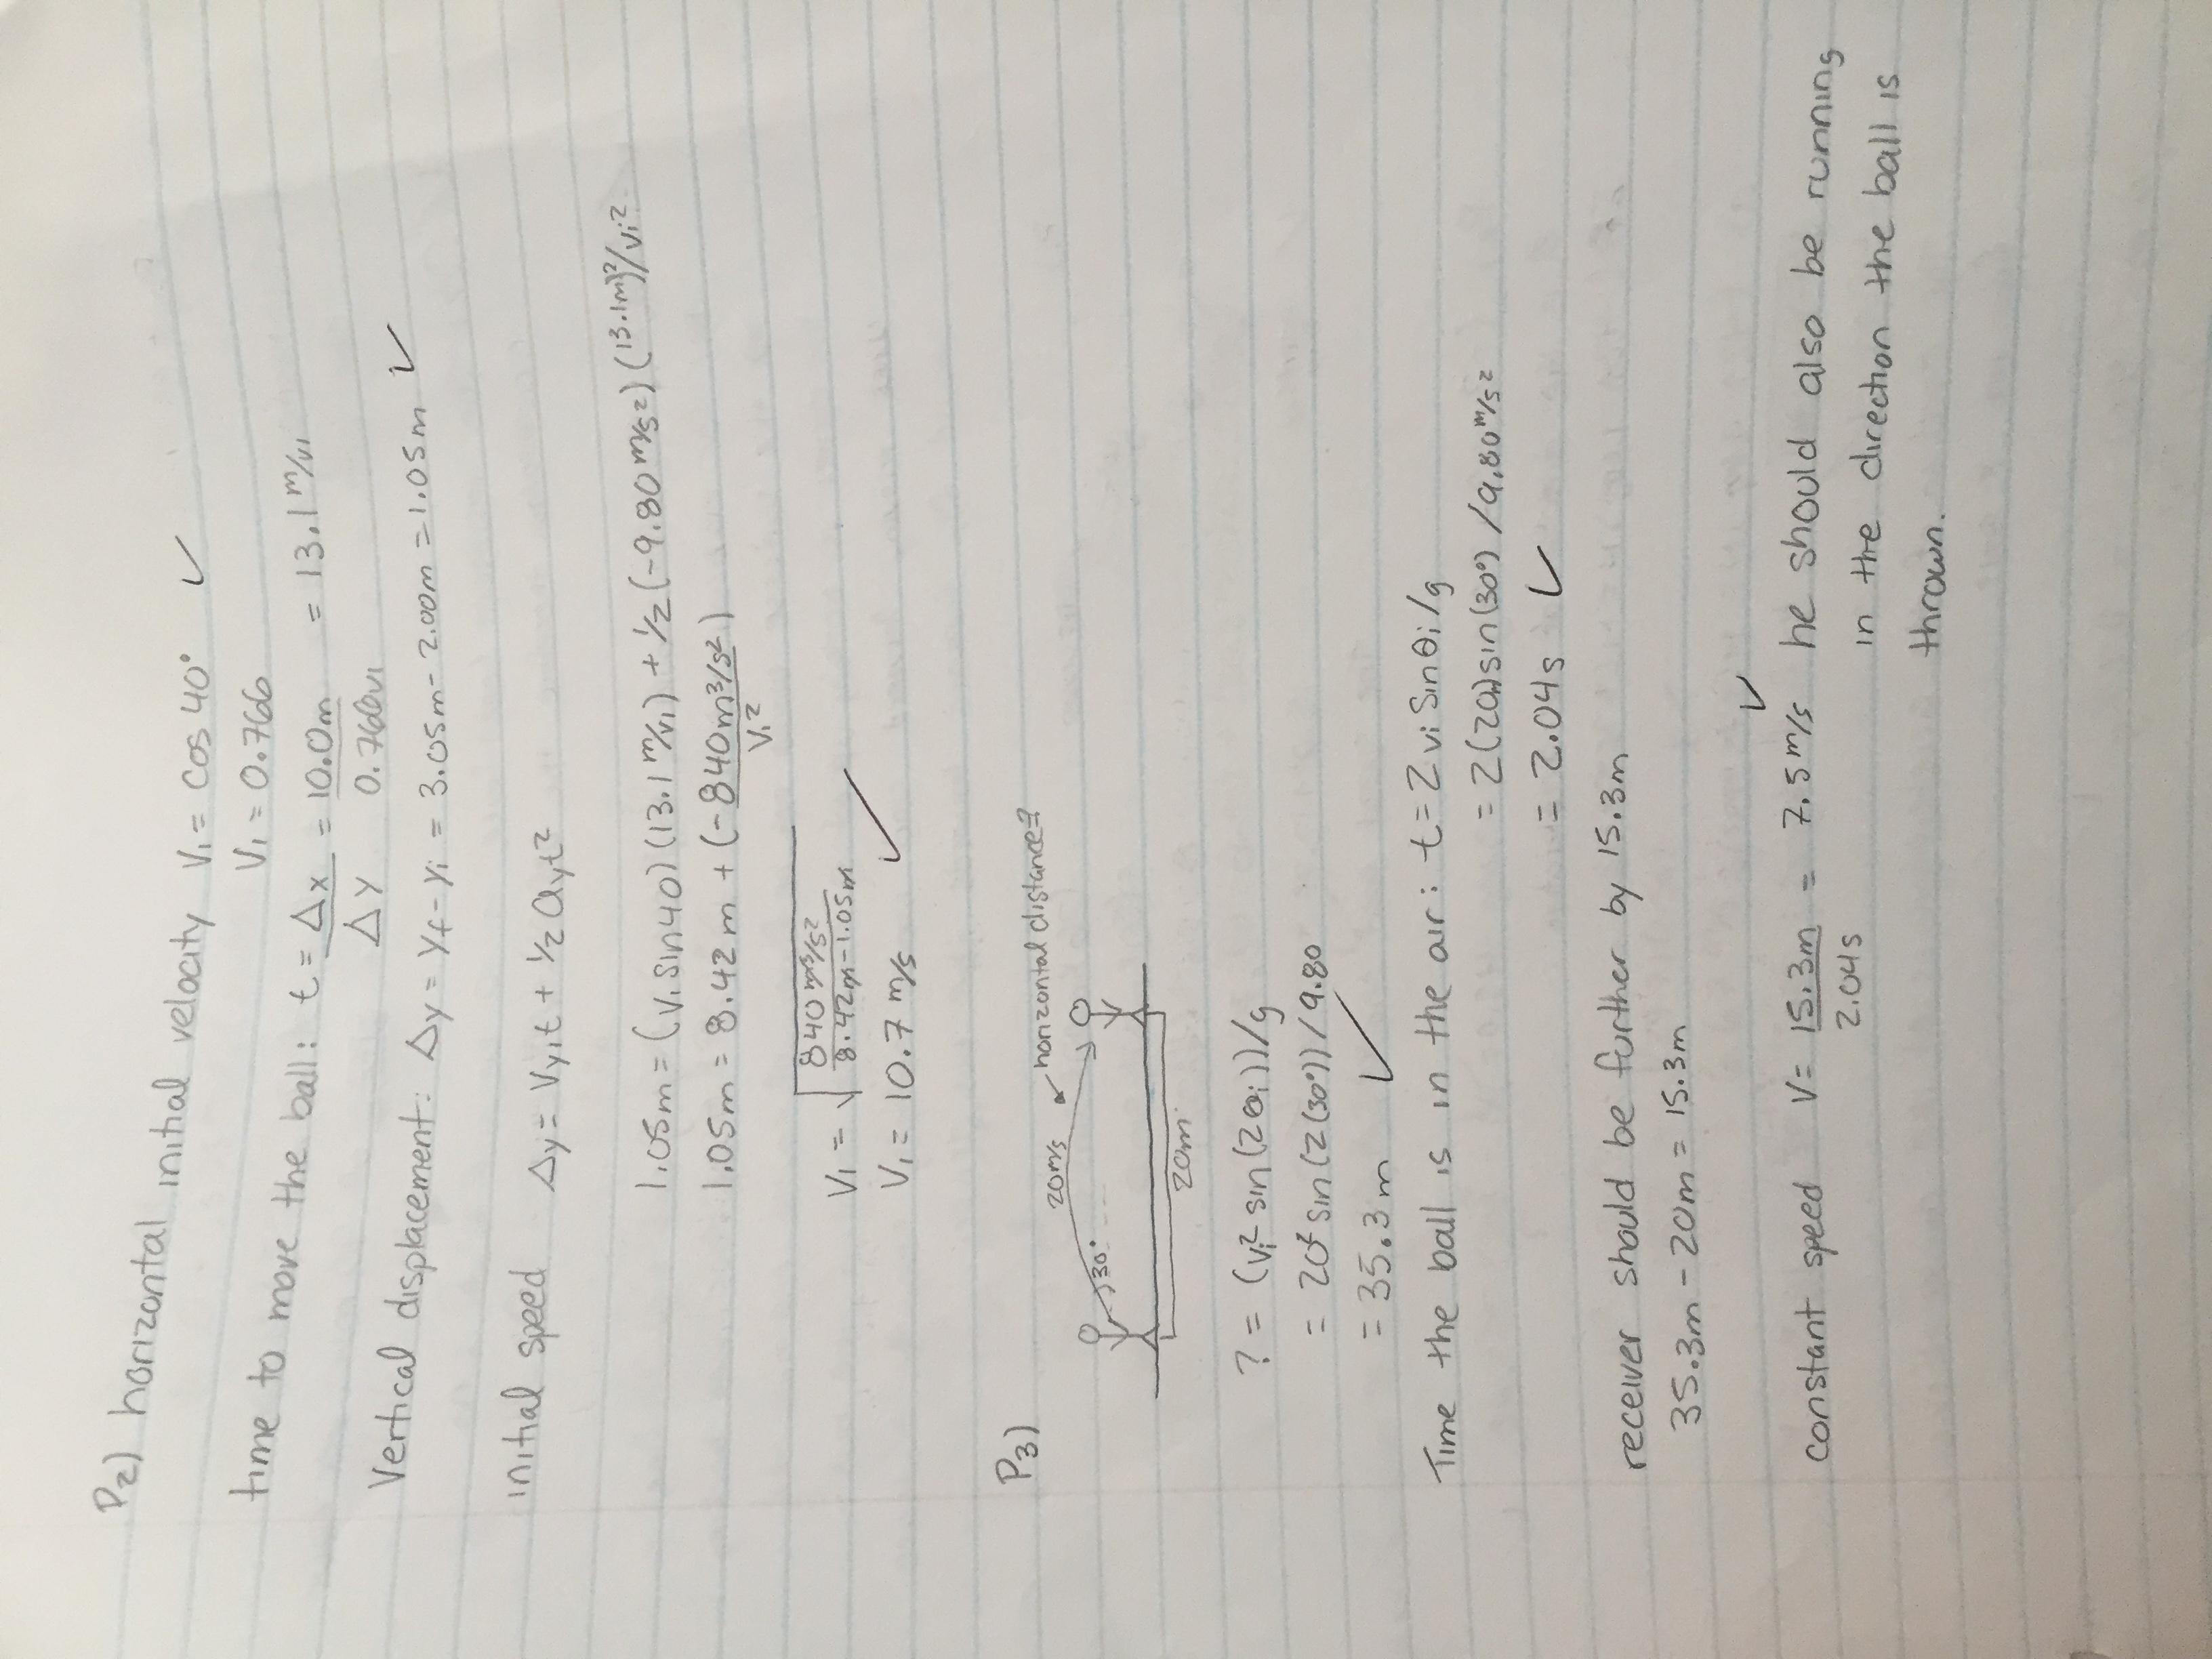 P2) horizontal initial velocity V₁ = cos 40° ✓
V₁ = 0.766
time to move the ball: t = Δx/Δy = 10.0m/0.766v₁ = 13.1 m/v₁
Vertical displacement: Δy = yf - yi = 3.05m - 2.00m = 1.05m ✓
initial speed Δy = Vyit + 1/2 ayt²
1.05m = (v₁ sin40)(13.1 m/v₁) + 1/2 (-9.80 m/s²)(13.1m)²/vi²
1.05m = 8.42m + (-840m³/s²)/Vi²
V₁ = √(840 m³/s² / 8.42m - 1.05m)
V₁ = 10.7 m/s ✓
P3)
horizontal distance?
20m/s
30°
20m
? = (vi² sin(2θi))/g
= 20² sin(2(30°))/9.80
= 35.3m ✓
Time the ball is in the air: t = 2 vi sinθi/g
= 2(20)sin(30°)/9.80 m/s²
= 2.04s ✓
receiver should be further by 15.3m
35.3m - 20m = 15.3m
constant speed V = 15.3m/2.04s = 7.5 m/s ✓ he should also be running
in the direction the ball is
thrown.